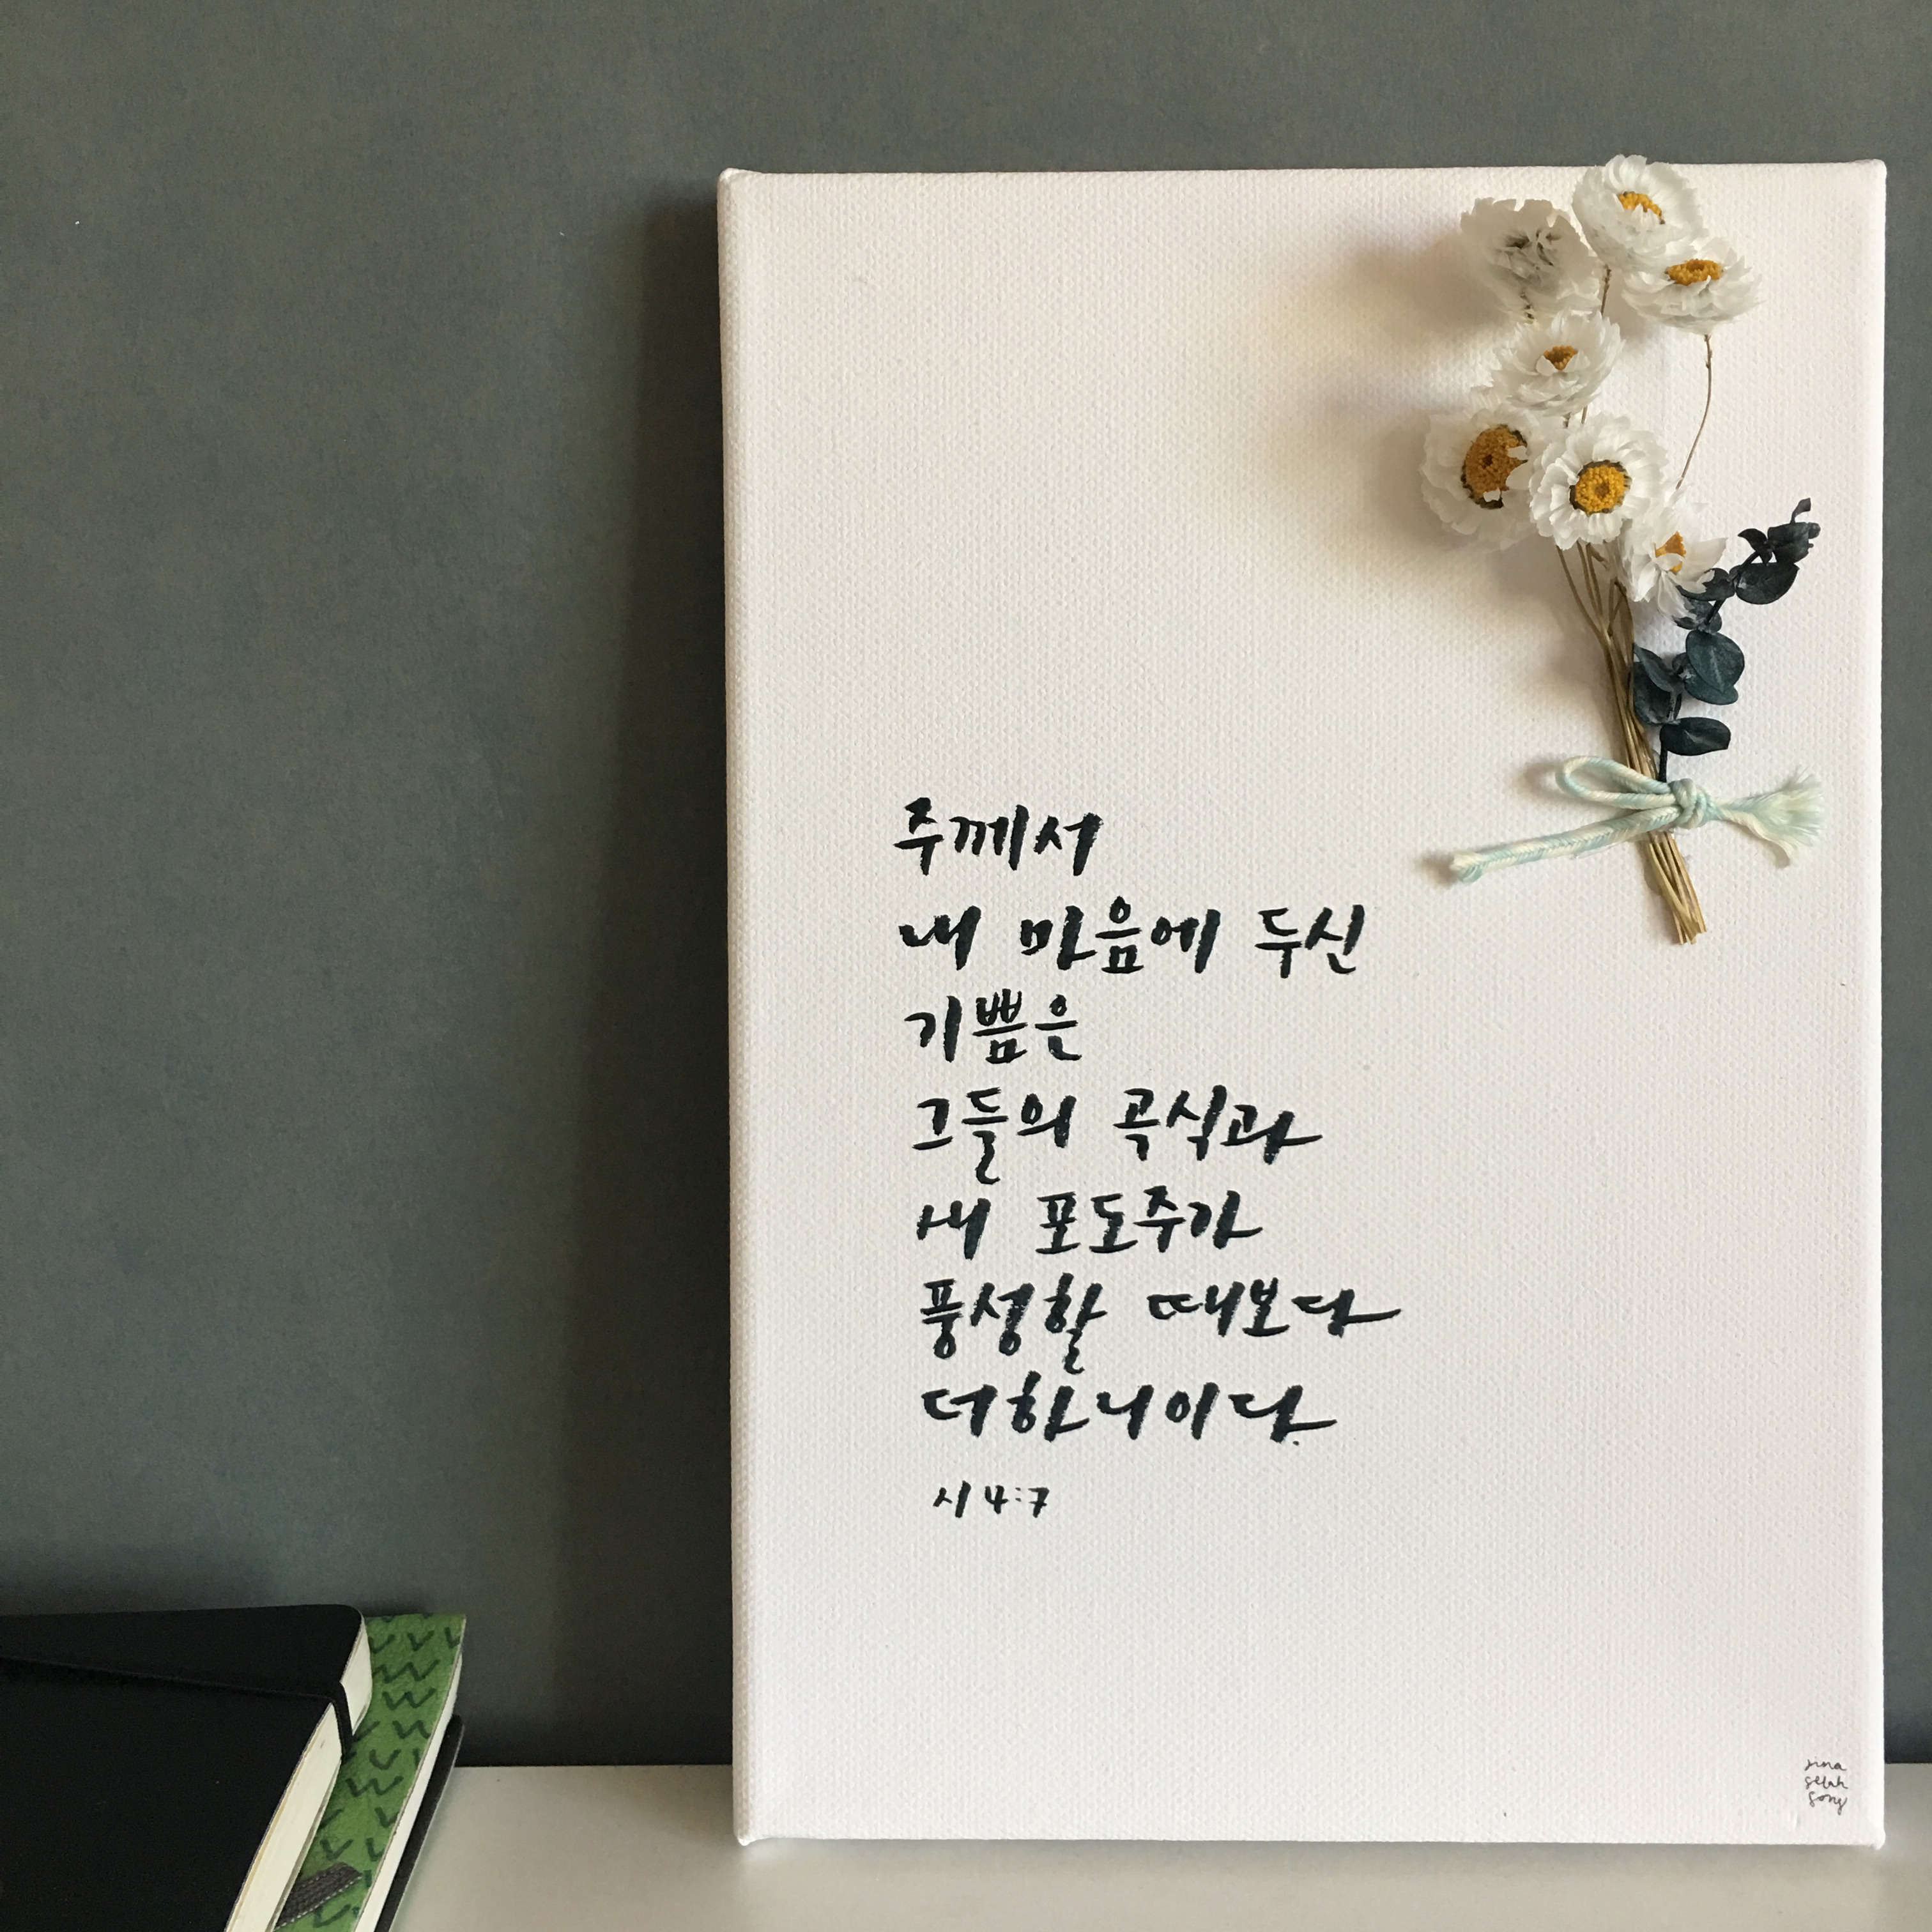 주께서
내 마음에 두신
기쁨은
그들의 곡식과
새 포도주가
풍성할 때보다
더하니이다.
시 4:7
selah
song